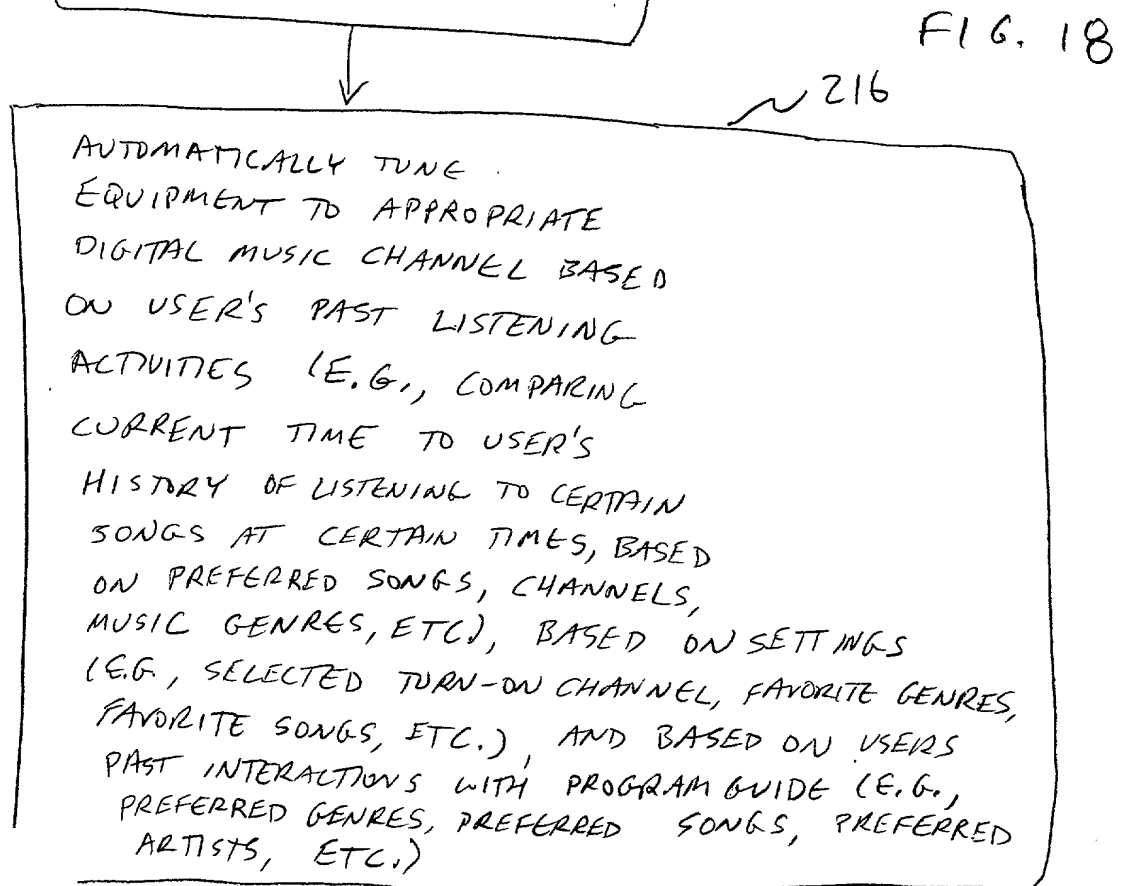 FIG. 18
216
AUTOMATICALLY TUNE
EQUIPMENT TO APPROPRIATE
DIGITAL MUSIC CHANNEL BASED
ON USER'S PAST LISTENING
ACTIVITIES (E.G., COMPARING
CURRENT TIME TO USER'S
HISTORY OF LISTENING TO CERTAIN
SONGS AT CERTAIN TIMES, BASED
ON PREFERRED SONGS, CHANNELS,
MUSIC GENRES, ETC), BASED ON SETTINGS
(E.G., SELECTED TURN-ON CHANNEL, FAVORITE GENRES,
FAVORITE SONGS, ETC.), AND BASED ON USERS
PAST INTERACTIONS WITH PROGRAM GUIDE (E.G.,
PREFERRED GENRES, PREFERRED SONGS, PREFERRED
ARTISTS, ETC.)